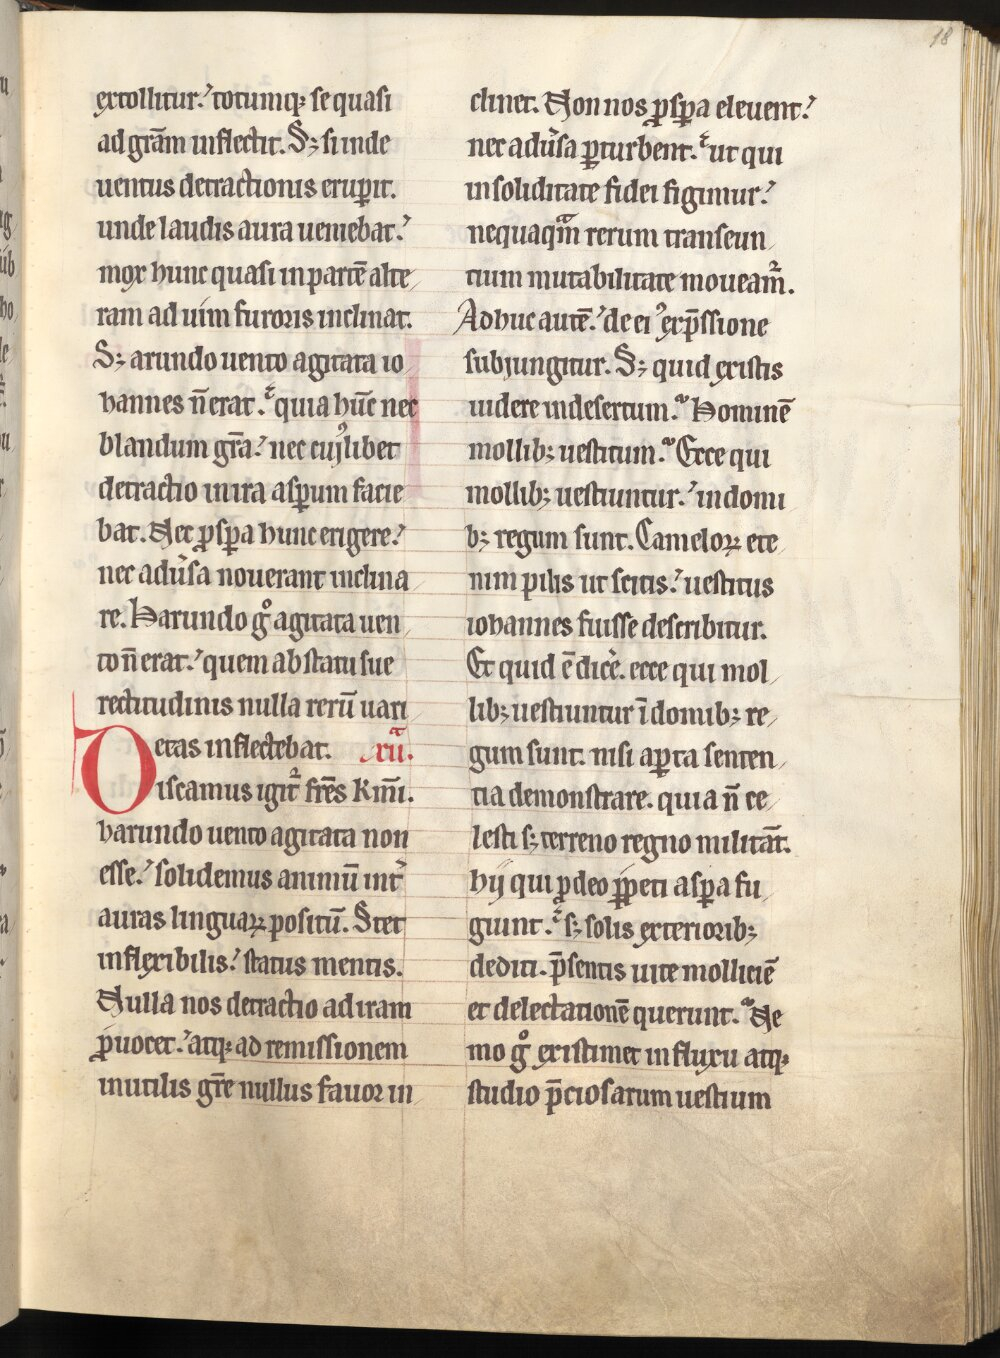 18
extollitur. totumq; se quasi
ad gr̄am inflectit. S; si inde
uentus detractionis erup̱it.
unde laudis aura ueniebat.
mox hunc quasi in partē alte
ram ad uim furoris inclinat.
S; arundo uento agitata io
hannes n̄ erat. quia hūc nec
blandum gr̄a. nec cuj᾽libet
detractio in ira asp̱um facie
bat. Nec p̱sp̱a hunc erigere.
nec adu̓sa nouerant inclina
re. Harundo gͦ agitata uen
to n̄ erat. quem ab statu sue
rectitudinis nulla rerū uari
etas inflectebat. xii.
Discamus igit᷑ fr̄es k̄mi.
harundo uento agitata non
esse. solidemus animū int᷑
auras linguaꝝ positū. Stet
inflexibilis. status mentis.
Nulla nos detractio ad iram
ꝓuocet. atq; ad remissionem
inutilis gr̄e nullus fauor in
clinet. Non nos ꝓsꝑa eleuent.
nec adu̓sa ꝑturbent. ut qui
in soliditate fidei figimur.
nequaqᷓm rerum transeun
tium mutabilitate moueam᷑.
Adhuc autē. de ei᾽ exp̄ssione
subjungitur. S; quid existis
uidere in desertum. Hominē
mollib; uestitum. Ecce qui
mollib; uestiuntur. in domi
b; regum sunt. Cameloꝝ ete
nim pilis ut scitis. uestitus
iohannes fuisse describitur.
Et quid ē dic̄e. ecce qui mol
lib; uestiuntur ī domib; re
gum sunt. nisi aꝑta senten
tia demonstrare. quia n̄ ce
lesti s; terreno regno militāt.
hij qui ꝓ deo ꝑpeti asꝑa fu
giunt. s; solis exteriorib;
dediti. p̄sentis uite molliciē
et delectationē querunt. Ne
mo gͦ existimet in fluxu atq;
studio p̄ciosarum uestium